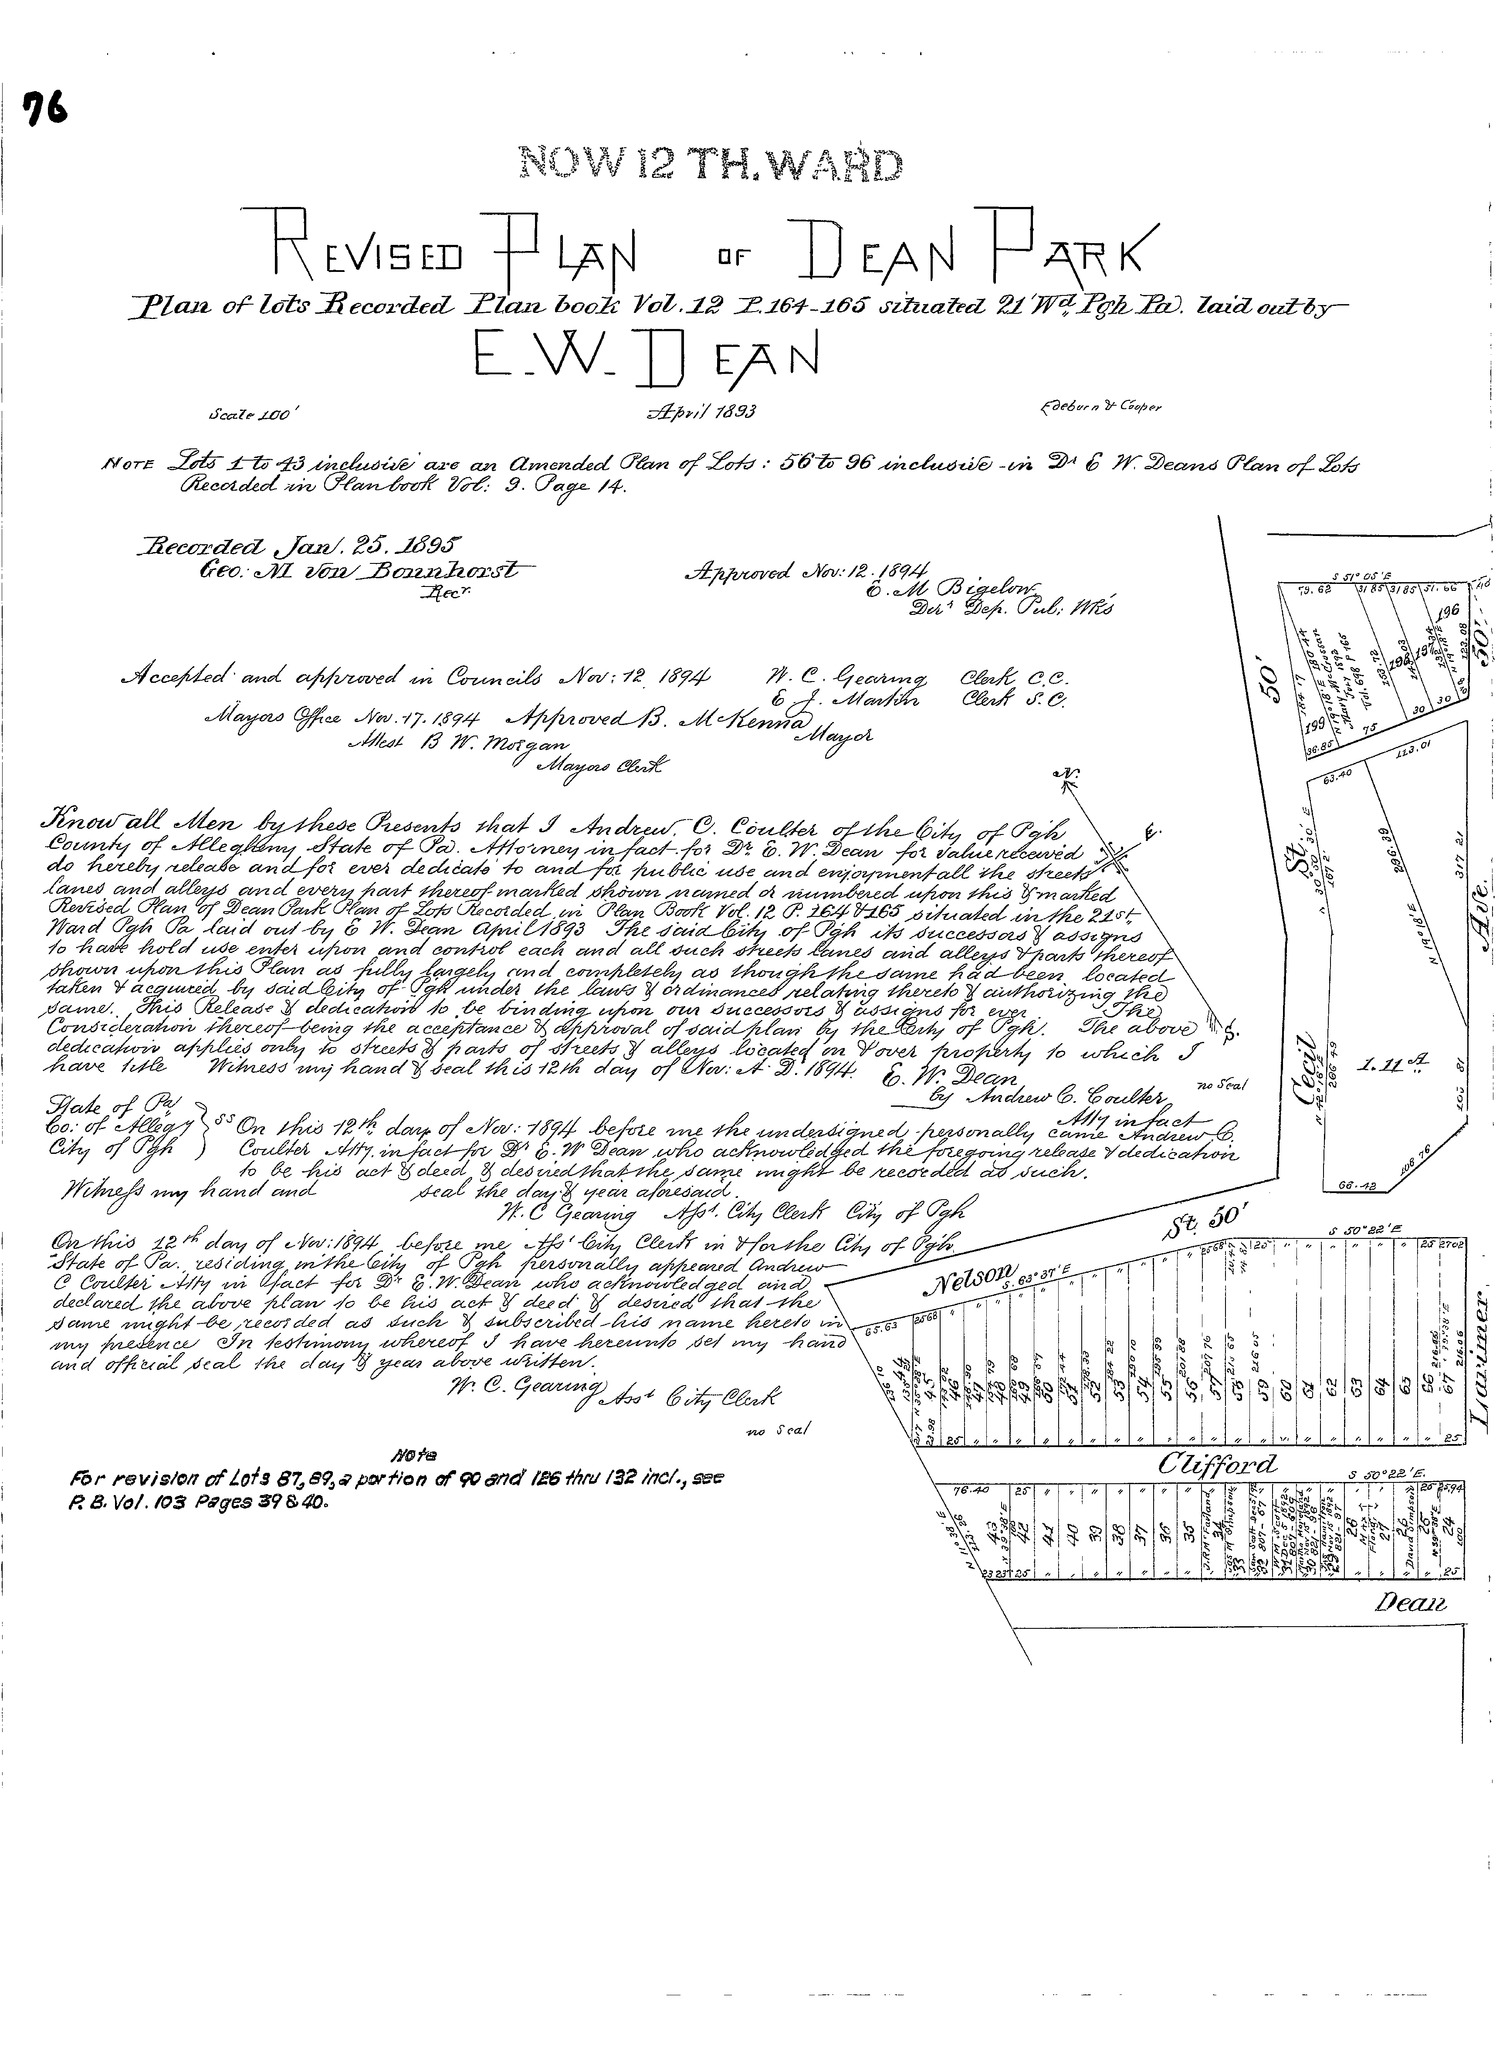 76
NOW 12 TH. WARD
REVISED PLAN OF DEAN PARK
Plan of lots Recorded Plan book Vol. 12 P. 164-165 situated 21 Wd, Pgh Pa. laid out by
E. W. DEAN
Scale 100'
April 1893
Edeburn & Cooper
NOTE Lots 1 to 43 inclusive are an Amended Plan of Lots: 56 to 96 inclusive - in Dr E W. Deans Plan of Lots
Recorded in Planbook Vol: 9. Page 14.
Recorded Jan. 25. 1895
Geo: M von Bonnhorst
Recr.
Approved Nov: 12. 1894
E. M Bigelow
Derr Dep. Pub: Wks
Accepted and approved in Councils Nov: 12. 1894 W. C. Gearing Clerk C.C.
E J. Martin Clerk S.C.
Mayors Office Nov. 17. 1894 Approved B. McKenna
Mayor
Attest B W. Morgan
Mayors Clerk
N.
E.
S.
Know all Men by these Presents that I Andrew. C. Coulter of the City of Pgh
County of Allegheny State of Pa. Attorney in fact for Dr. E. W. Dean for value received
do hereby release and for ever dedicate to and for public use and enjoyment all the streets
lanes and alleys and every part thereof marked shown named or numbered upon this & marked
Revised Plan of Dean Park Plan of Lots Recorded in Plan Book Vol. 12 P. 164 & 165 situated in the 21st
Ward Pgh Pa laid out by E W. Dean April 1893 The said City of Pgh its successors & assigns
to have hold use enter upon and control each and all such streets lanes and alleys & parts thereof
shown upon this Plan as fully largely and completely as though the same had been located
taken & acquired by said City of Pgh under the laws & ordinances relating thereto & authorizing the
same. This Release & dedication to be binding upon our successors & assigns for ever The
Consideration thereof being the acceptance & approval of said plan by the City of Pgh. The above
dedication applies only to streets & parts of streets & alleys located on & over property to which I
have title Witness my hand & seal this 12th day of Nov: A. D. 1894. E. W. Dean
by Andrew C. Coulter no Seal
Atty in fact
State of Pa
Co: of Allegy
City of Pgh
SS On this 12th day of Nov: 1894 before me the undersigned personally came Andrew C.
Coulter Atty. in fact for Dr E. W Dean who acknowledged the foregoing release & dedication
to be his act & deed & desired that the same might be recorded as such.
Witness my hand and seal the day & year aforesaid.
W. C Gearing Asst. City Clerk City of Pgh
On this 12th day of Nov: 1894 before me Asst City Clerk in & for the City of Pgh
State of Pa. residing in the City of Pgh personally appeared Andrew
C Coulter Atty in fact for Dr E. W. Dean who acknowledged and
declared the above plan to be his act & deed & desired that the
same might be recorded as such & subscribed his name hereto in
my presence In testimony whereof I have hereunto set my hand
and official seal the day & year above written.
W. C. Gearing Asst City Clerk
no Seal
Note
For revision of Lots 87, 89, a portion of 90 and 126 thru 132 incl., see
P. B. Vol. 103 Pages 39 & 40.
S 51° 05' E
79.62 31 85 31 85 31.66
196
50'
50'
199
36.85 75 30 30
63.40 113.01
St.
296.39
317 21
N 19° 18' E
Ave.
Cecil
1.11 A
108 76
66.42
St. 50'
S 50° 22' E
Nelson S. 63° 37' E
65.63 25 68 25 27 02
44 45 46 47 48 49 50 51 52 53 54 55 56 57 58 59 60 61 62 63 64 65 66 67
Larimer
Clifford
S 50° 22' E.
76.40 25 25 25.94
43 42 41 40 39 38 37 36 35 34 33
24
23 25 25 25
Dean